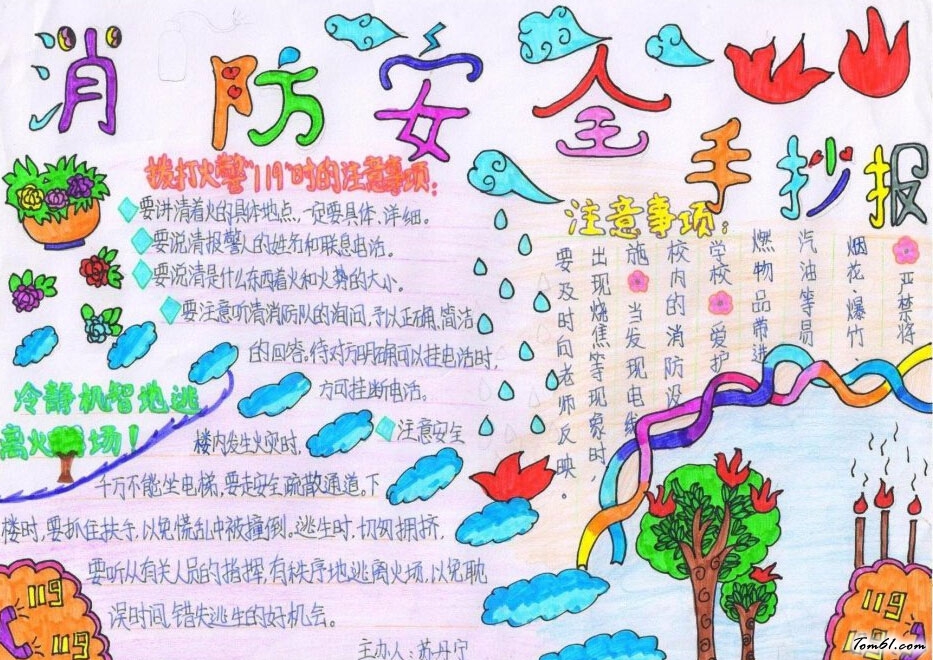 消防安全
手抄报
拨打火警"119"时的注意事项:
要讲清着火的具体地点,一定要具体、详细。
要说清报警人的姓名和联息电话。
要说清是什么东西着火和火势的大小。
要注意听清消防队的询问,予以正确、简洁
的回答,待对方明确可以挂电话时,
方可挂断电话。
冷静机智地逃
离火场!
注意安全
楼内发生火灾时,
千万不能坐电梯,要走安全疏散通道。下
楼时,要抓住扶手,以免慌乱中被撞倒。逃生时,切勿拥挤,
要听从有关人员的指挥,有秩序地逃离火场,以免耽
误时间,错失逃生的好机会。
主办人:苏丹宁
注意事项:
严禁将
烟花、爆竹、
汽油等易
燃物品带进
学校 爱护
校内的消防设
施 当发现电线
出现烧焦等现象时,
要及时向老师反映。
119
119
119
119
Tom61.com